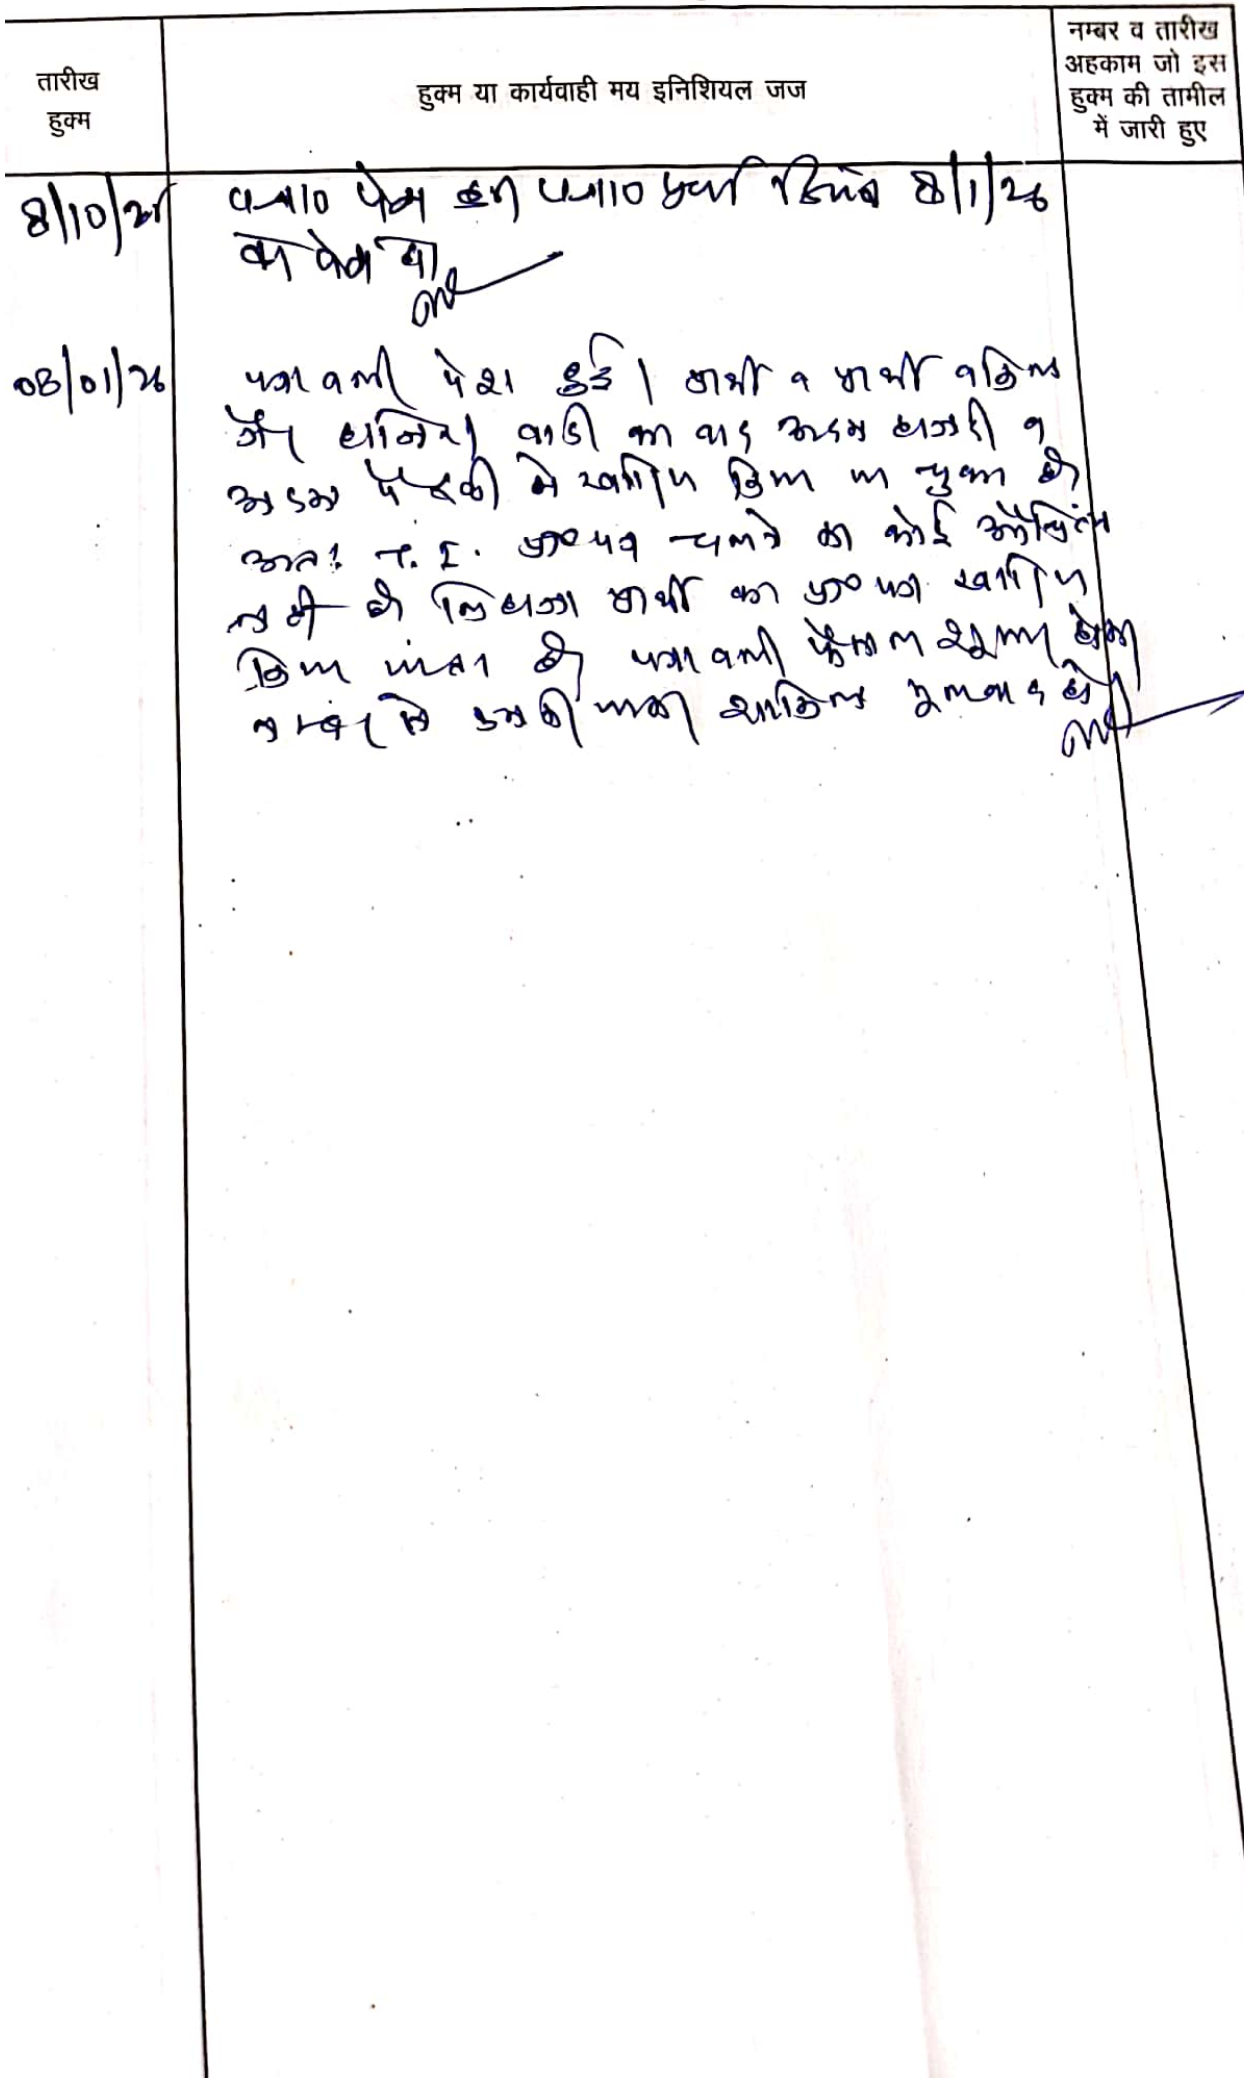 तारीख
हुक्म
हुक्म या कार्यवाही मय इनिशियल जज
नम्बर व तारीख
अहकाम जो इस
हुक्म की तामील
में जारी हुए
8/10/25 पत्रा0 पेश हुई पत्रा0 8/1/26
को पेश हो
08/01/26 पत्रावली पेश हुई। प्रार्थी व प्रार्थी वकिल
गैर हाजिर। वादी का वाद अदम हाजरी व
अदम पैरवी मे खारीज किया जा चुका है
अतः T.I. प्रा० पत्र चलने का कोई औचित्य
नही है लिहाजा प्रार्थी का प्रा० पत्र खारिज
किया जाता है पत्रावली फैसल शुमार होकर
नम्बर से कमकी जाकर शामिल मूलवाद हो।